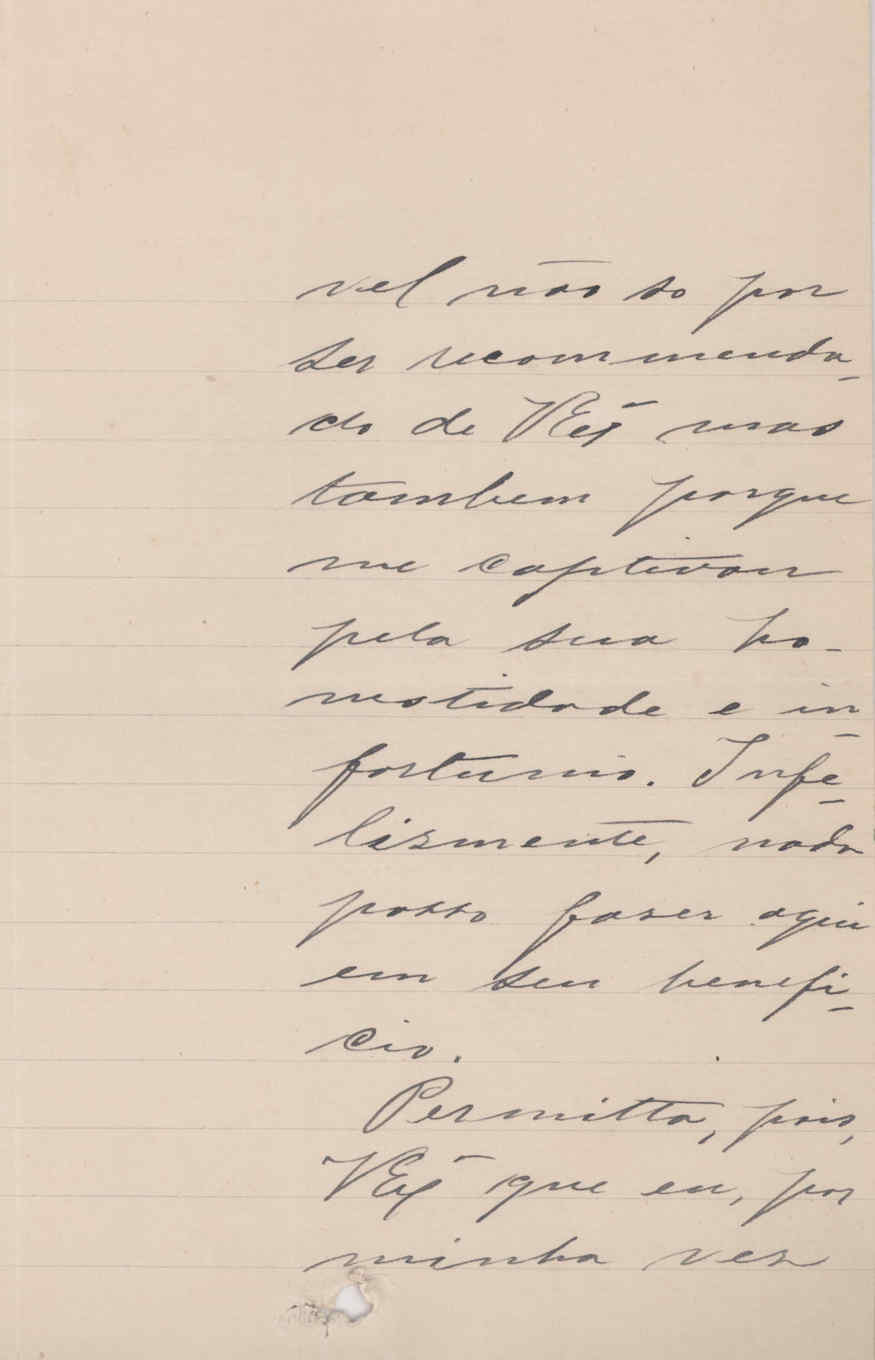 vel não so por
ser recommenda-
do de VEx mas
tambem porque
me captivou
pela sua ho-
nestidade e in-
fortunio. Infe-
lismente, nada
posso faser aqui
em seu benefi-
cio.
Permitta, pois,
VEx que eu, por
minha ves